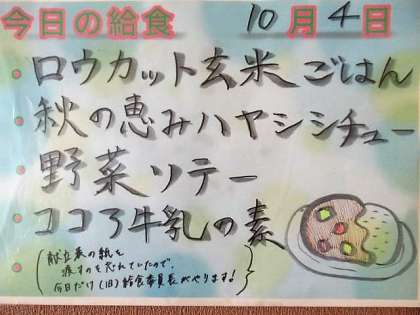 今日の給食 10月4日
・ロウカット玄米ごはん
・秋の恵みハヤシシチュー
・野菜ソテー
・ココろ牛乳の素
(献立表の紙を
渡すのを忘れていたので、
今日だけ(旧)給食委員長がやります!)